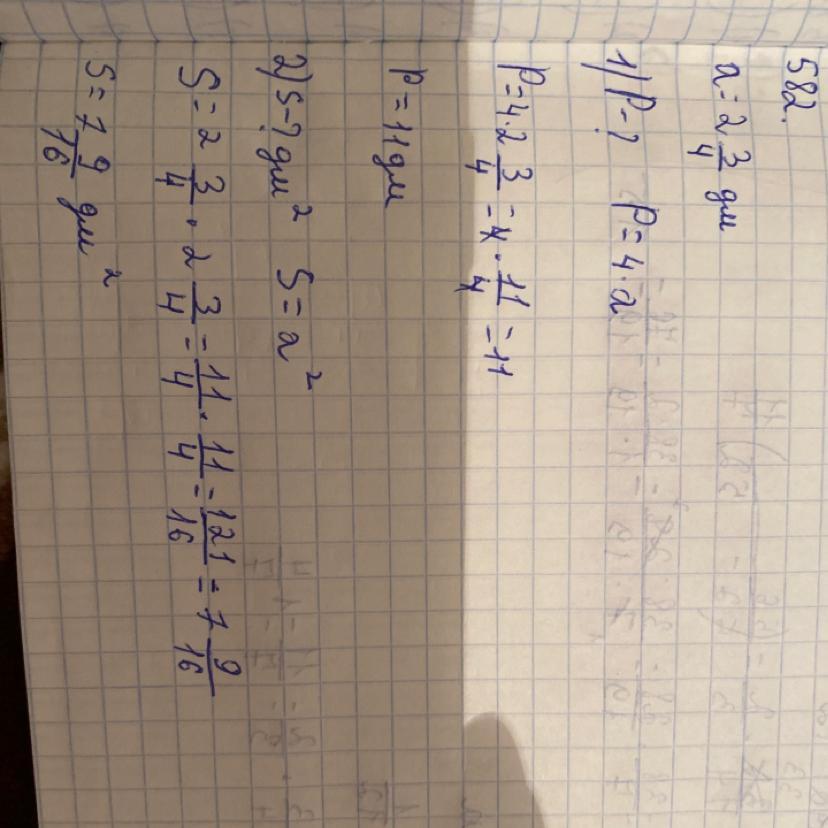 582.
a = 2 3/4 дм
1) P-? P = 4·a
P = 4·2 3/4 = 4 · 11/4 = 11
P = 11 дм
2) S-? дм² S = a²
S = 2 3/4 · 2 3/4 = 11/4 · 11/4 = 121/16 = 7 9/16
S = 7 9/16 дм²